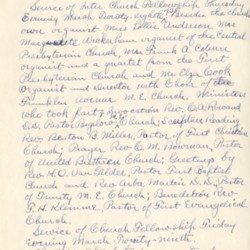 Service of Inter Church Fellowship Thursday
Evening March Twenty eighth Presided the
own organist Miss Lottie Anderson, Mrs
Marguerite Wakelum organist of the Central
Presbyterian Church, Mrs Frank A. Colmer
organist and a quartet from the First
Presbyterian Church and Mr Olga Cook
Organist and Director with Choir of the
Franklin Avenue M.E. Church Ministers
who took part Invocation Rev E.A. Howard
D.D. Pastor Church; Scripture Reading
Rev. Benton B. Miller, Pastor of First Christian
Church; Prayer Rev. O.M. Bowman, Pastor
of United Brethren Church; Greetings by
Rev H.O. Van Gilder, Pastor First Baptist
Church and Rev Arba Martin D.D. Pastor
of Trinity M.E. Church; Benediction Rev
P.H. Klemme, Pastor of First Evangelical
Church.
Service of Church Fellowship Friday
Evening March Twenty-ninth.